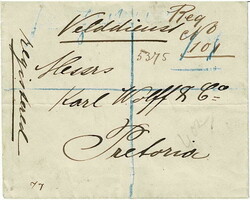 Velddienst
Reg
No
101
5375
Registered
Messrs
Karl Wolff & Co
Pretoria